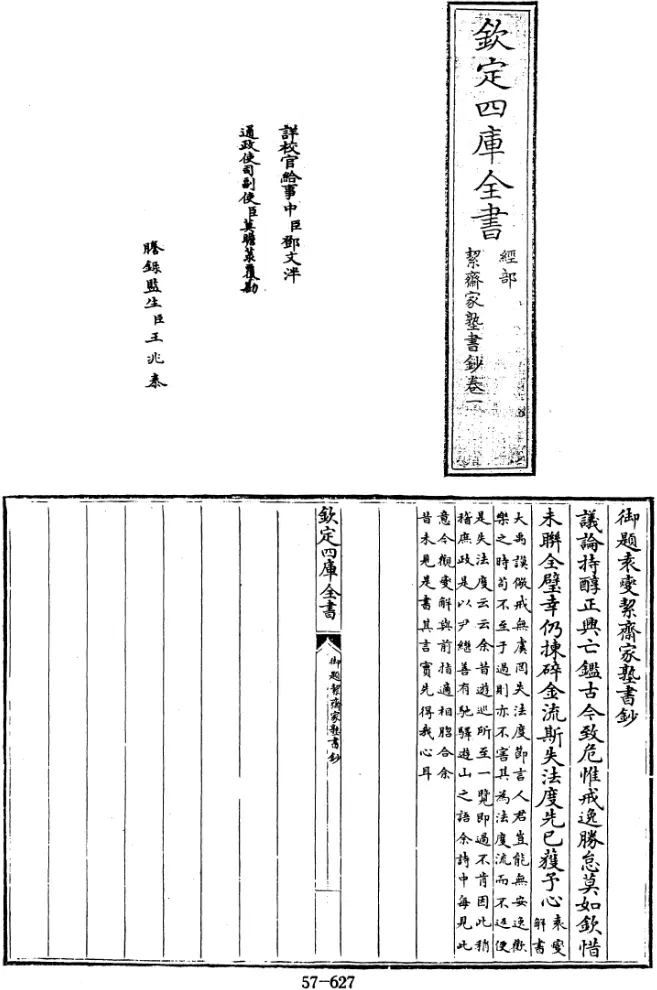 欽定四庫全書
經部
絜齋家塾書鈔卷一
詳校官給事中臣鄧文泮
通政使司副使臣莫瞻菉覆勘
謄錄監生臣王兆泰
御題袁燮絜齋家塾書鈔
議論持醇正興亡鑑古今致危惟戒逸勝怠莫如欽惜
未聯全璧幸仍揀碎金流斯失法度先已獲予心
袁燮
解書
大禹謨儆戒無虞罔失法度節言人君豈能無安逸歡
樂之時苟不至于過則亦不害其為法度流而不返便
是失法度云云余昔遊巡所至一覽即過不肯因此稍
稽庶政是以尹繼善有馳驛遊山之語余詩中每見此
意今觀燮解與前指適相脗合余
昔未見是書其言實先得我心耳
欽定四庫全書
御題絜齋家塾書鈔
57-627